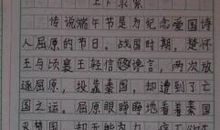 上下求索
传说端午节是为纪念爱国诗
人屈原的节日。战国时期,楚怀
王与顷襄王轻信谗言,两次放
逐屈原,投靠秦国,却遭到了亡
国之运。屈原眼睁睁地看着秦国